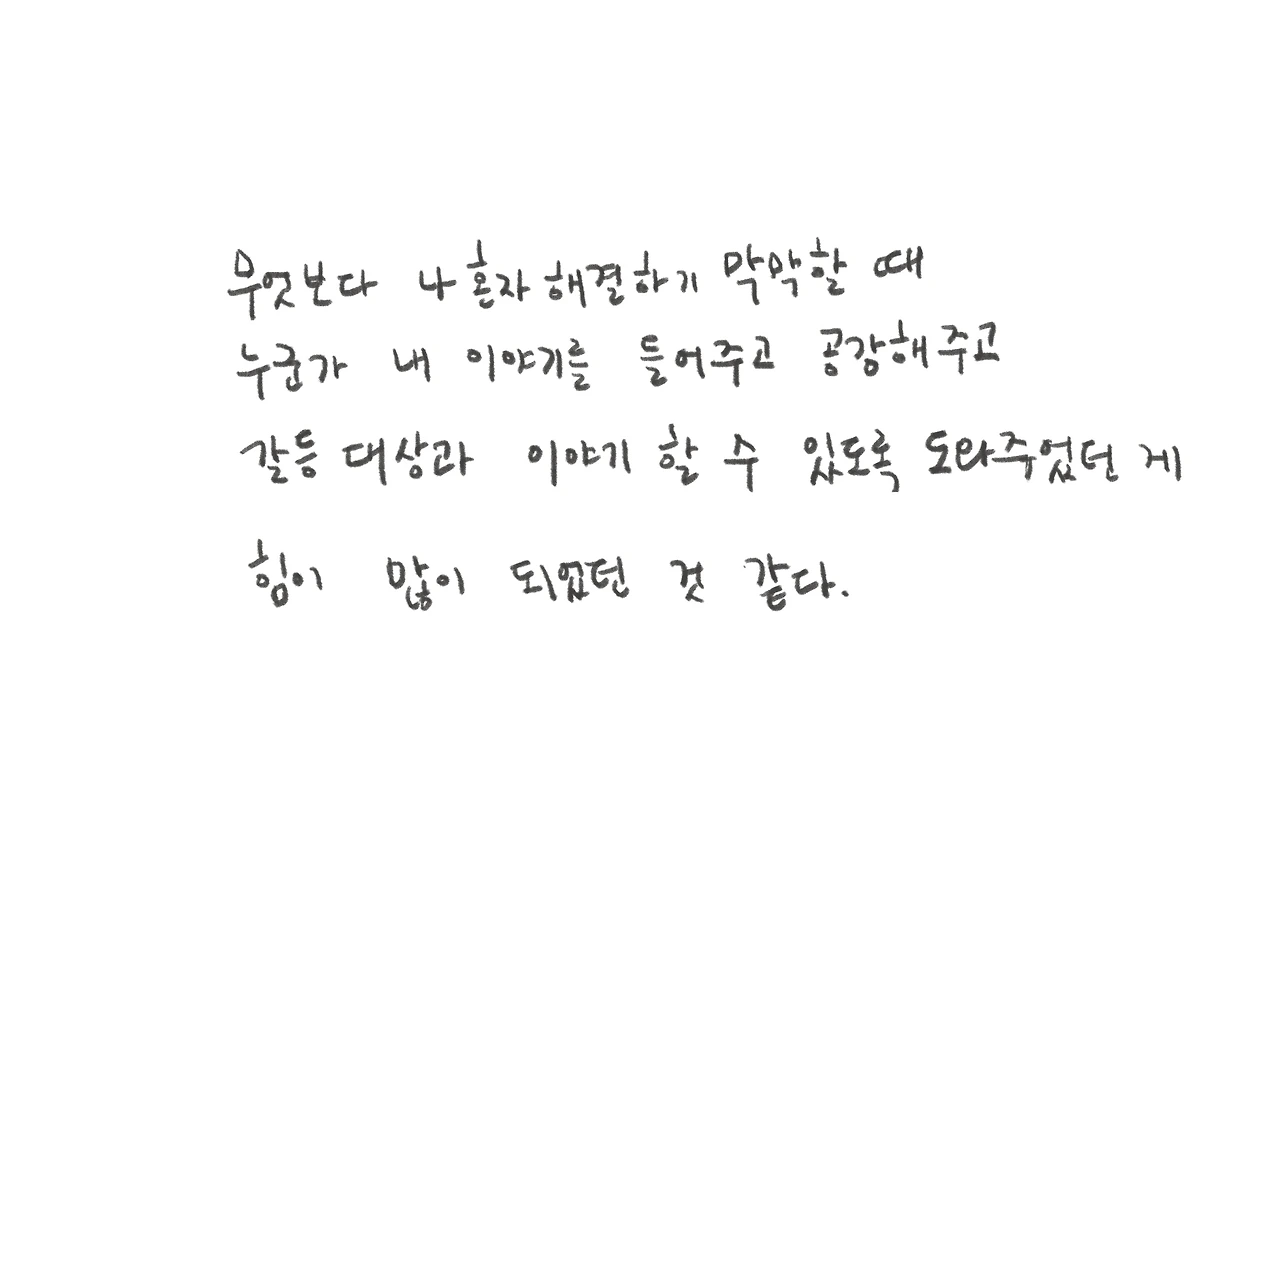 무엇보다 나 혼자 해결하기 막막할 때
누군가 내 이야기를 들어주고 공감해주고
갈등 대상과 이야기 할 수 있도록 도와주었던 게
힘이 많이 되었던 것 같다.